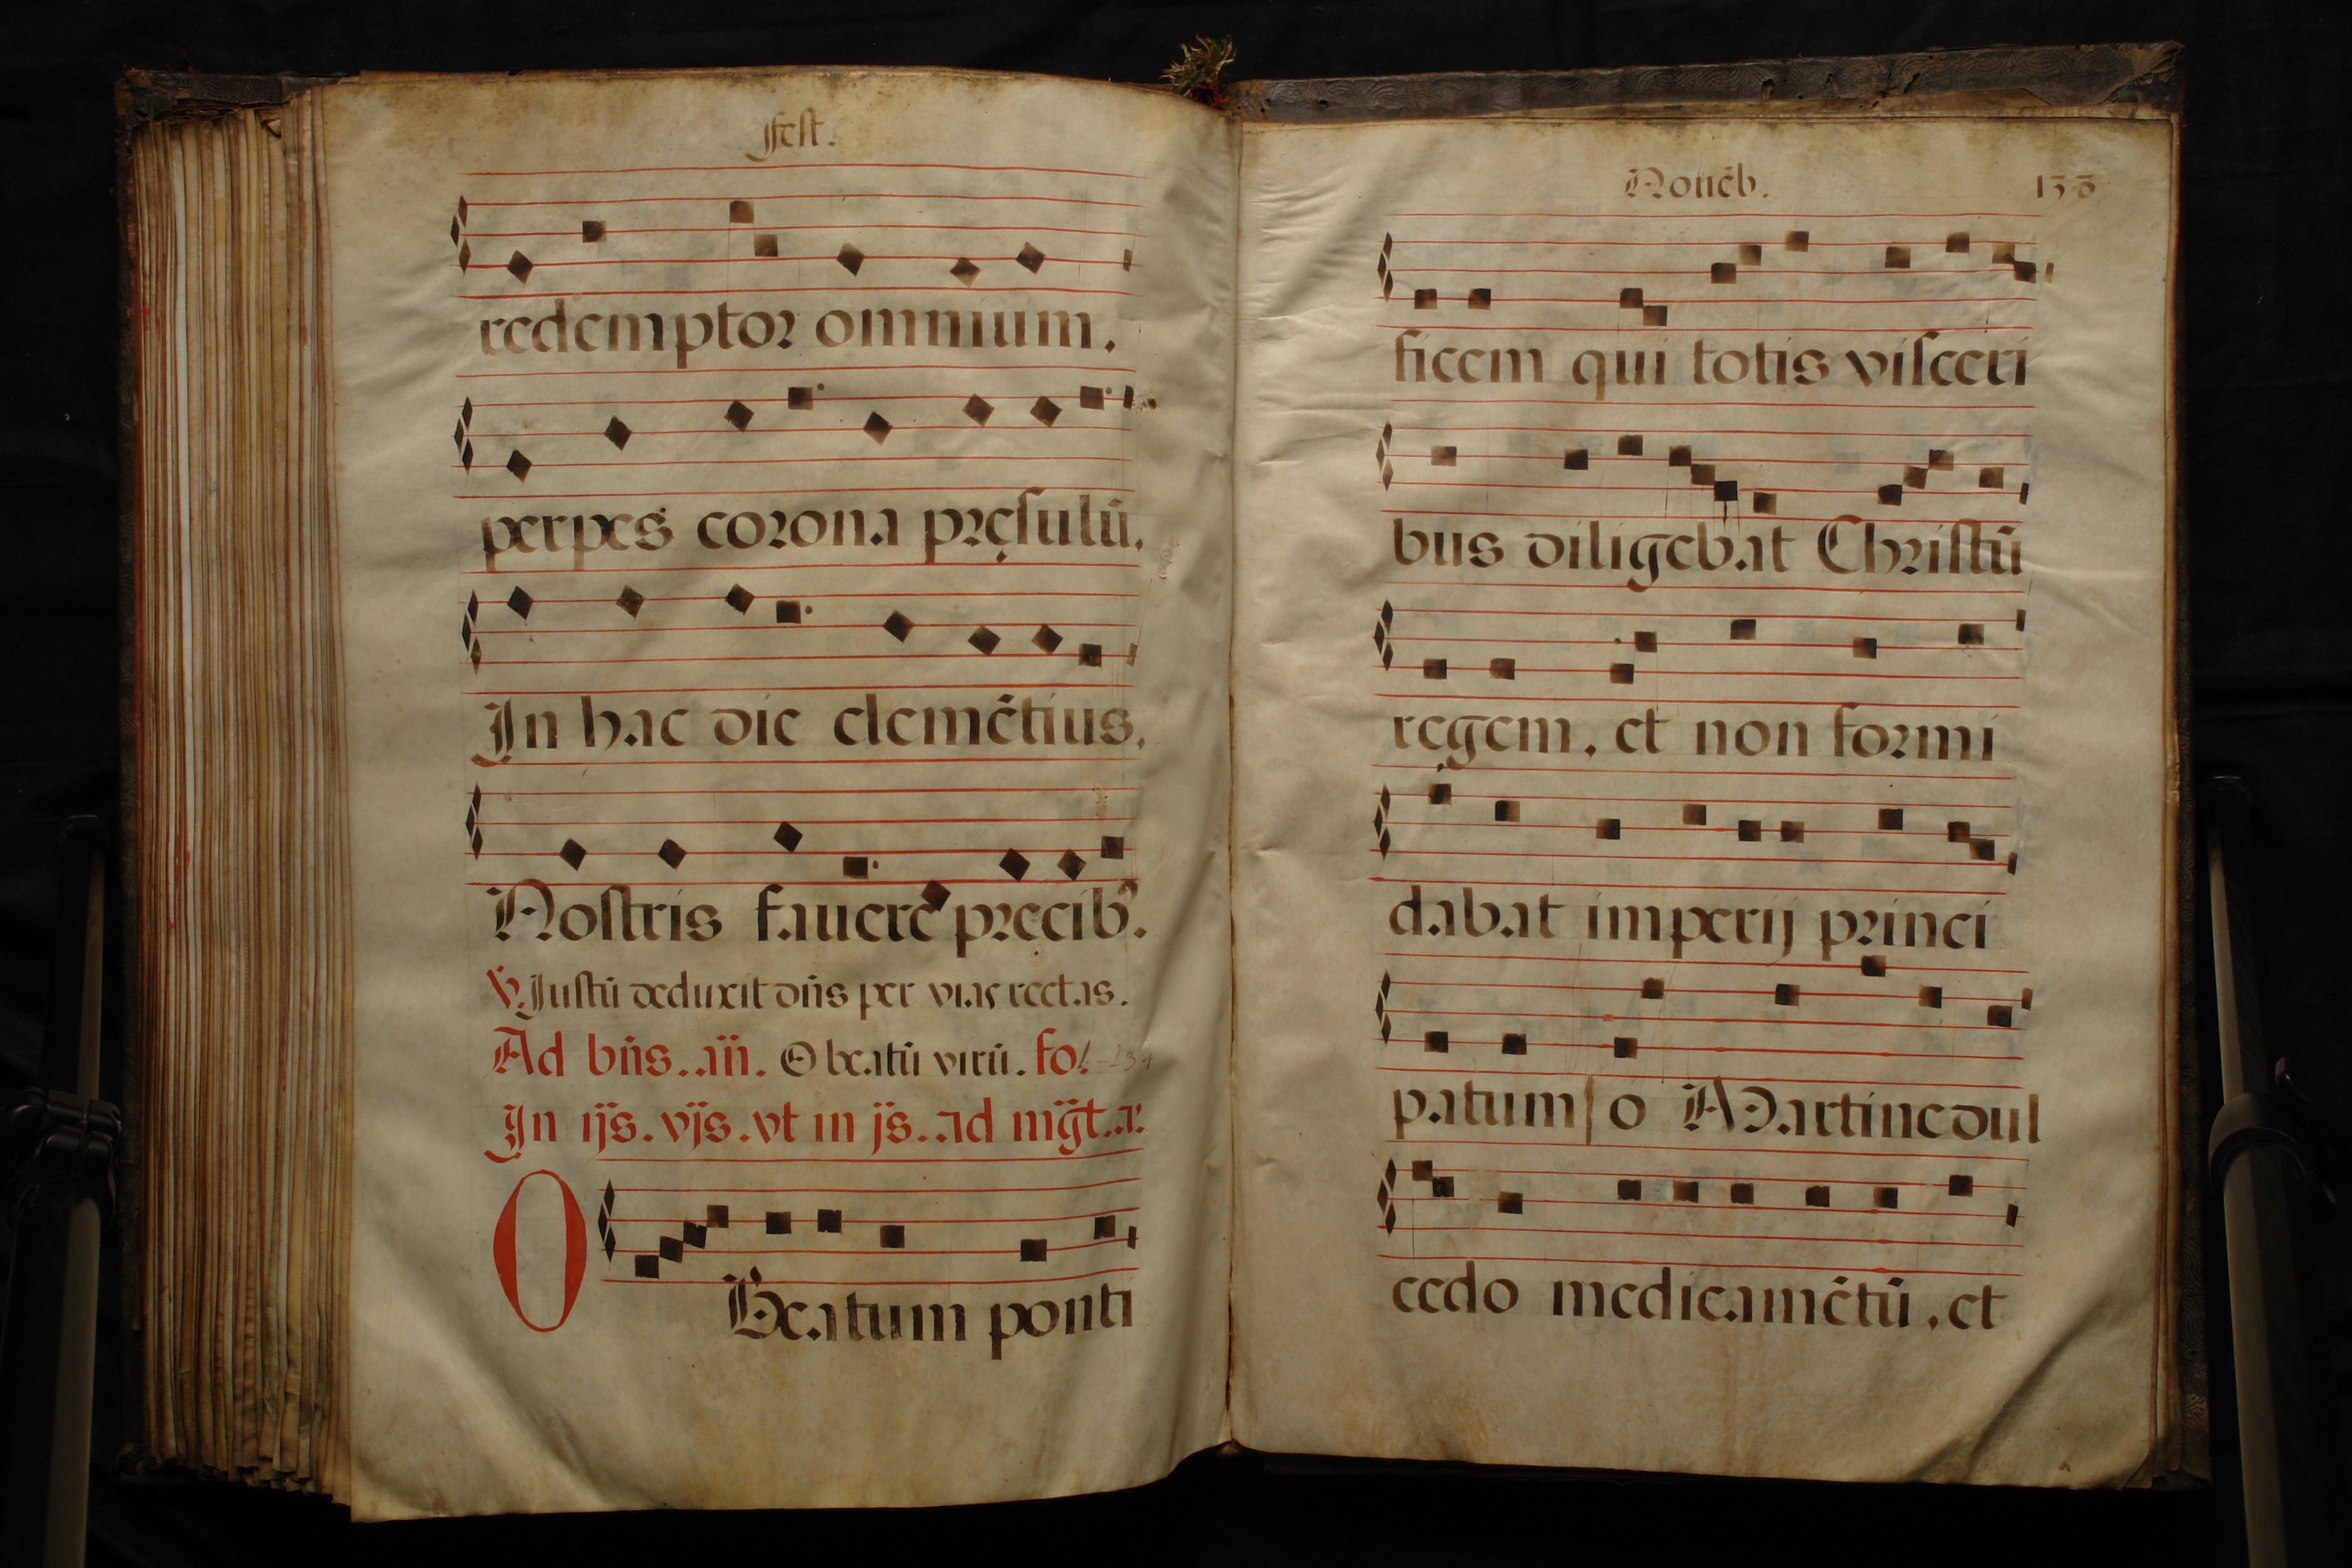 Fest.
redemptor omnium.
perpes corona pręsulū.
In hac die clemētius.
Nostris fauere pręcib⁹.
V. Justū deduxit dn̄s per vias rectas.
Ad bn̄s. an̄. O beatū virū. fol.
In ijs. vjs. vt in js. ad mḡt. a.
O Beatum ponti
Nouēb.
ficem qui totis visceri
bus diligebat Christū
ręgem, et non formi
dabat imperij princi
patum o Martine dul
cedo medicamētū, et